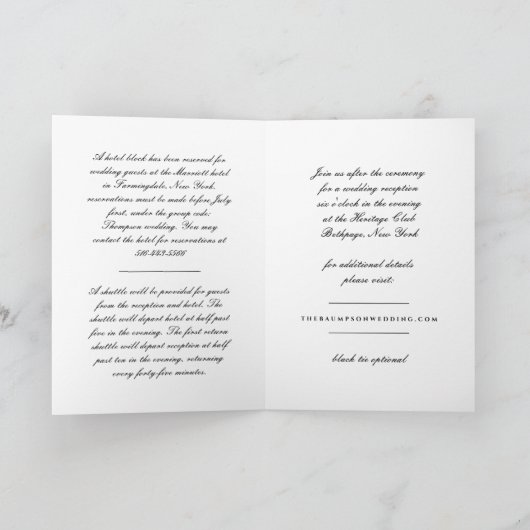 A hotel block has been reserved for
wedding guests at the Marriott hotel
in Farmingdale, New York.
reservations must be made before July
first, under the group code:
Thompson wedding. You may
contact the hotel for reservations at
516-443-5566
A shuttle will be provided for guests
from the reception and hotel. The
shuttle will depart hotel at half past
five in the evening. The first return
shuttle will depart reception at half
past ten in the evening, returning
every forty-five minutes.
Join us after the ceremony
for a wedding reception
six o'clock in the evening
at the Heritage Club
Bethpage, New York
for additional details
please visit:
THEBAUMPSONWEDDING.COM
black tie optional